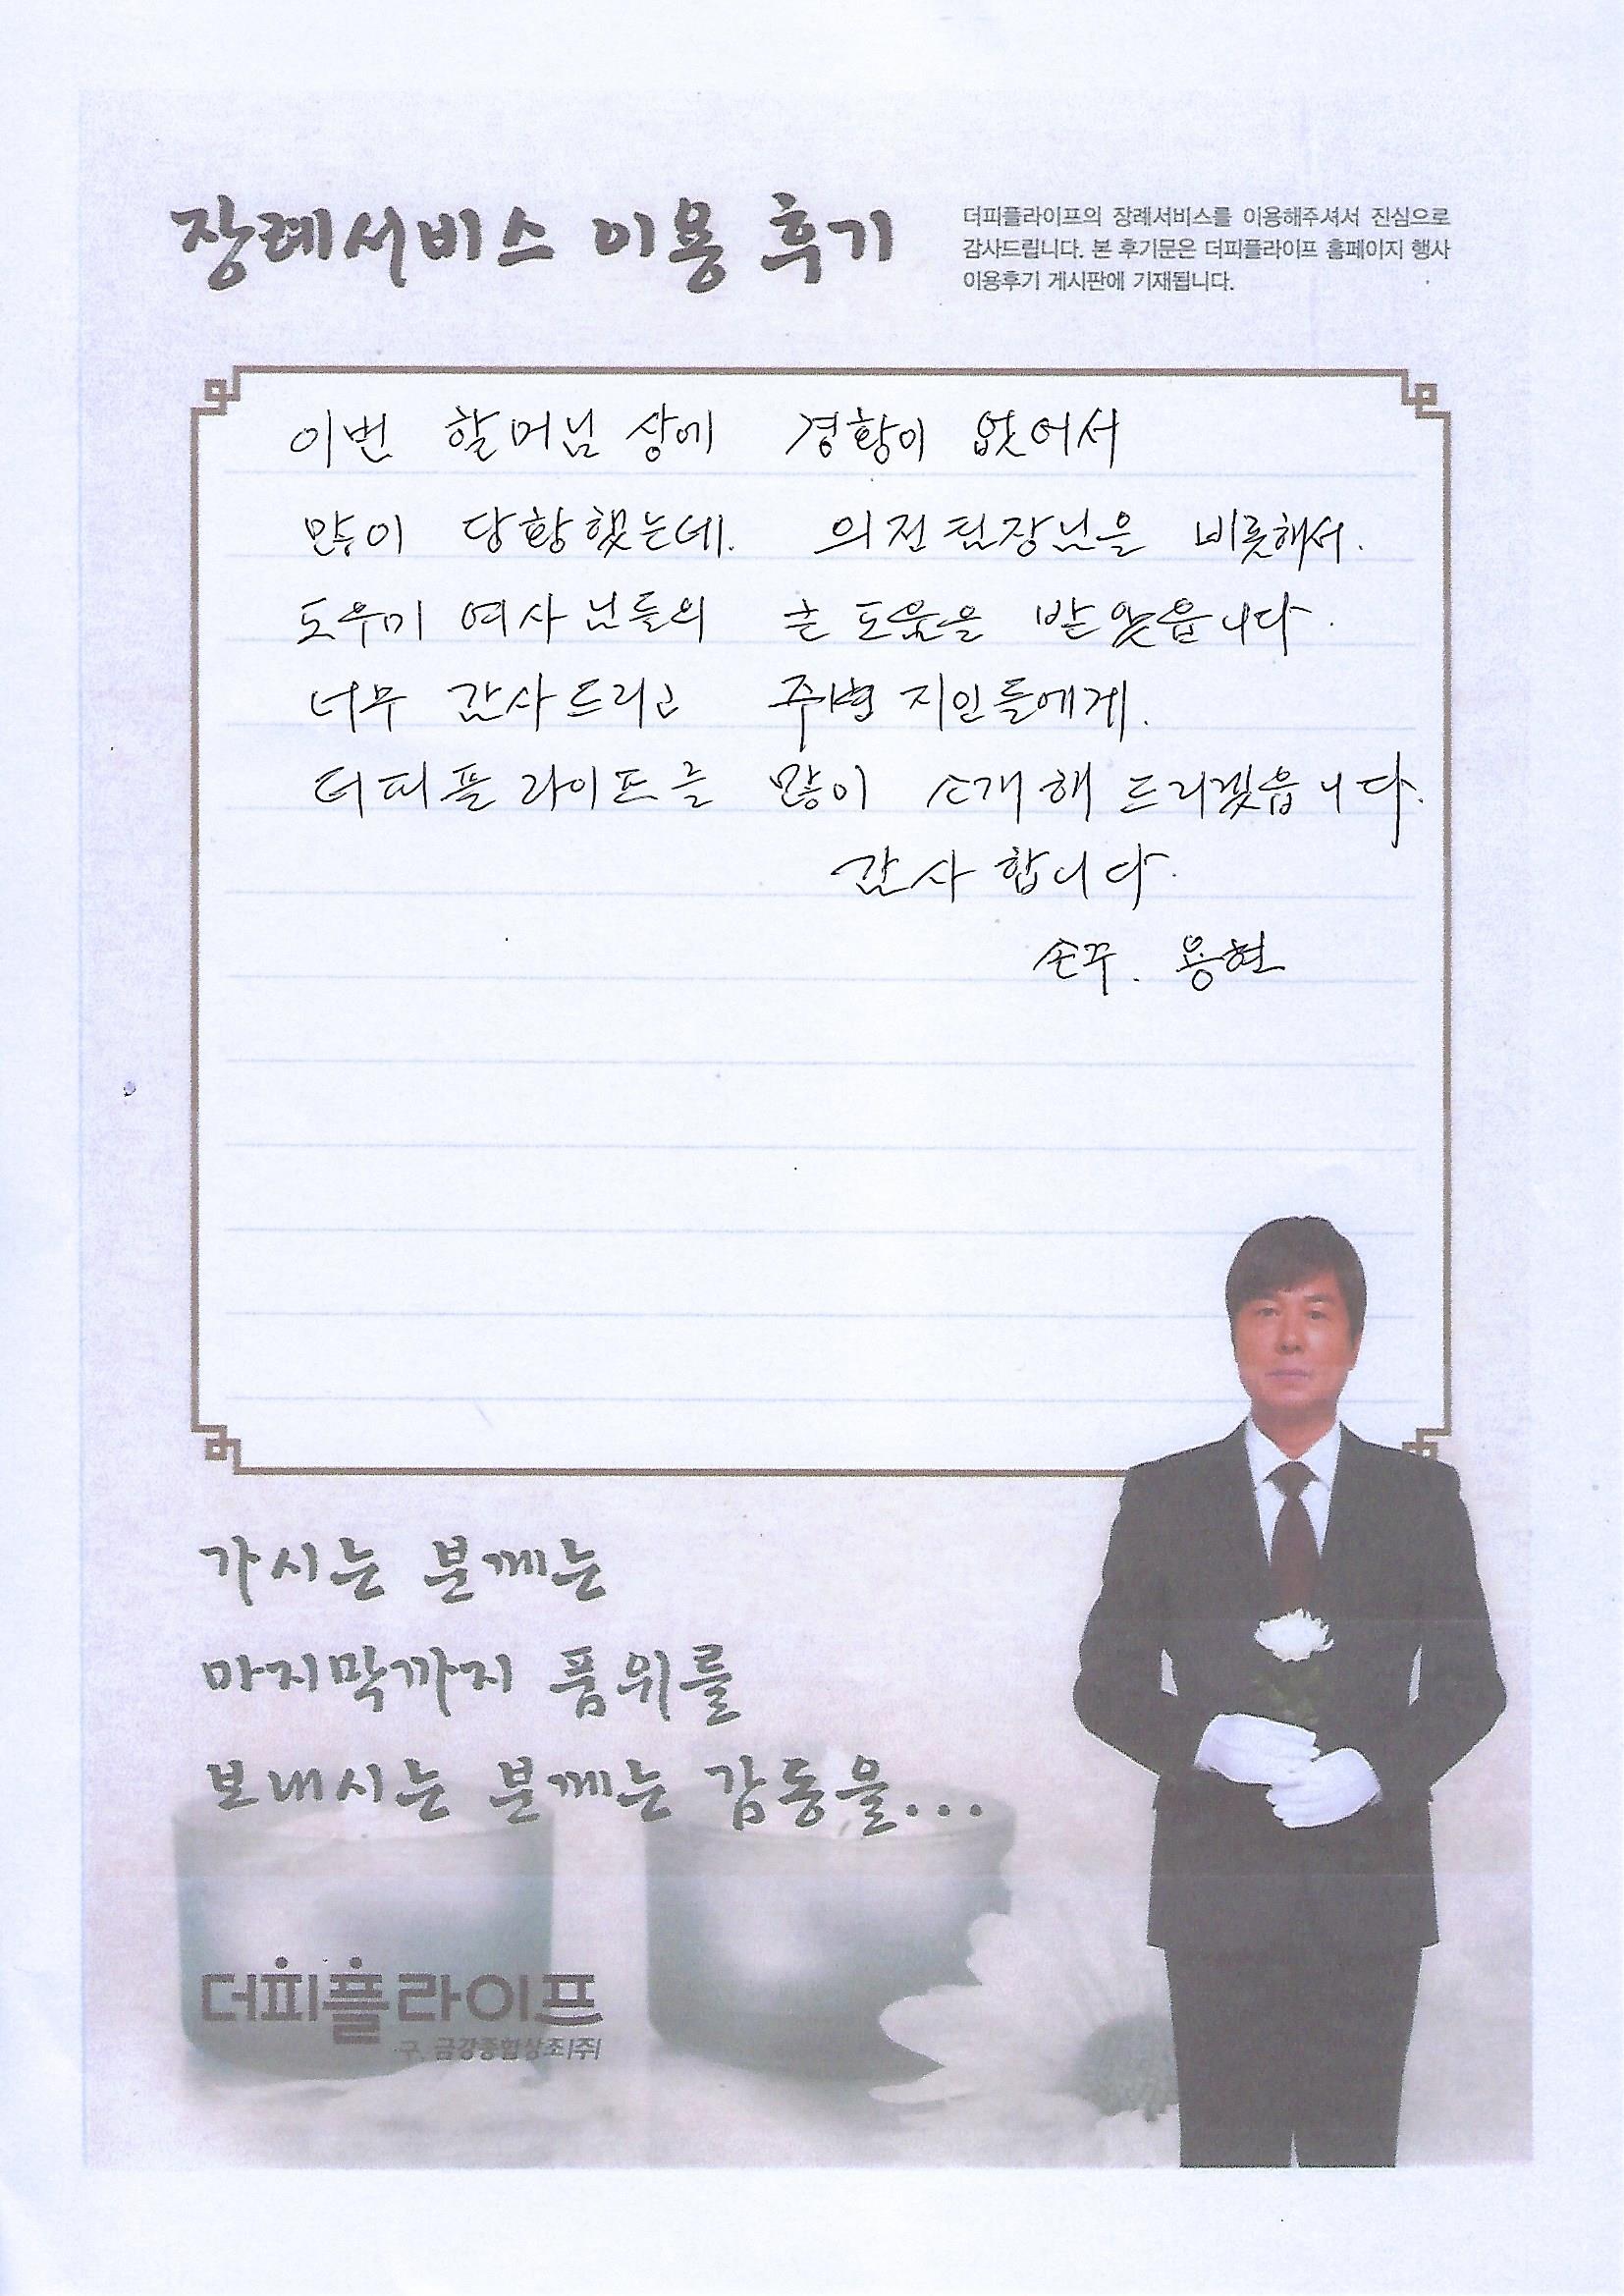 장례서비스 이용 후기
더피플라이프의 장례서비스를 이용해주셔서 진심으로
감사드립니다. 본 후기문은 더피플라이프 홈페이지 행사
이용후기 게시판에 기재됩니다.
이번 할머님 상에 경황이 없어서
많이 당황했는데. 의전팀장님을 비롯해서.
도우미 여사님들의 큰 도움을 받았읍니다.
너무 감사드리고 주변 지인들에게.
더피플라이프를 많이 소개해 드리겠읍니다.
감사합니다.
손주. 용현
가시는 분께는
마지막까지 품위를
보내시는 분께는 감동을...
더피플라이프
구. 금강종합상조(주)